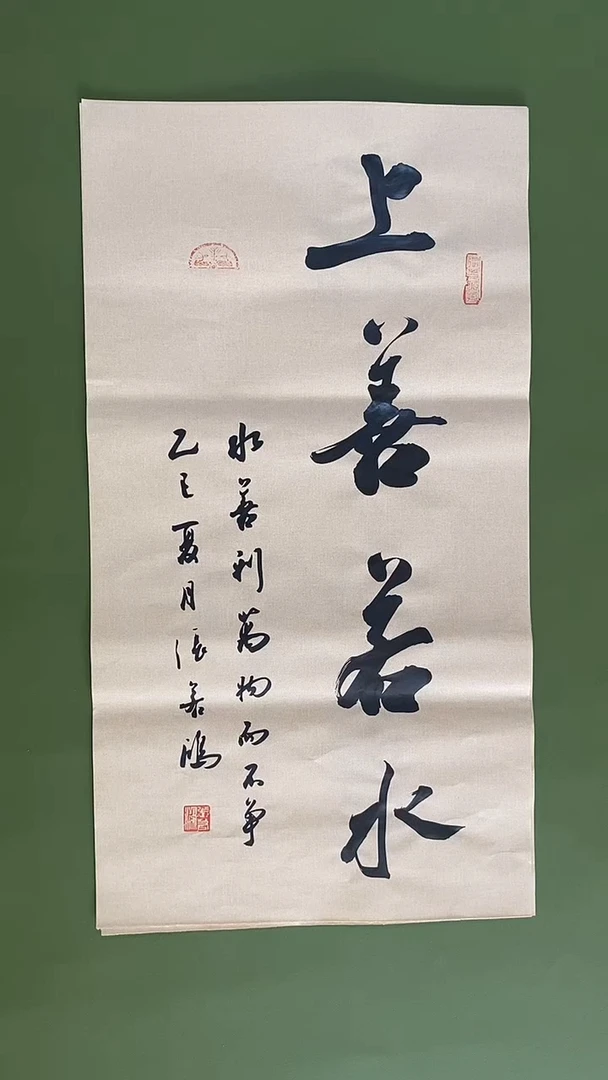 上善若水
水善利萬物而不争
乙巳夏月張善鴻